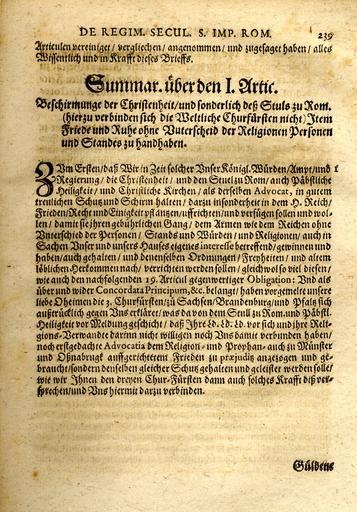 DE REGIM. SECUL. S. IMP. ROM. 239
Articulen vereiniget / verglichen / angenommen / und zugesaget haben / alles
Wissentlich und in Krafft dieses Brieffs.
Summar. über den I. Artic.
Beschirmunge der Christenheit / und sonderlich deß Stuls zu Rom.
(hierzu verbinden sich die Weltliche Churfürsten nicht) Item
Friede und Ruhe ohne Unterscheid der Religionen Personen
und Standes zu handhaben.
ZUm Ersten / daß Wir in Zeit solcher Unser Königl. Würden / Ampt / und 1
Regierung / die Christenheit / und den Stuel zu Rom / auch Päbstliche
Heiligkeit / und Christliche Kirchen / als derselben Advocat, in gutem
treulichen Schutz und Schirm halten / darzu insonderheit in dem H. Reich /
Frieden / Recht und Einigkeit pflantzen / uffrichten / und verfügen sollen und wol-
len / damit sie ihren gebührlichen Gang / dem Armen wie dem Reichen ohne
Unterschied der Personen / Stands und Würden / und Religionen / auch in
Sachen Unser und unsers Hauses eigenes interesse betreffend / gewinnen und
haben / auch gehalten / und denenselben Ordnungen / Freyheiten / und altem
löblichen Herkommen nach / verrichten werden sollen / gleichwol so viel diesen /
wie auch den nachfolgenden 19. Articul gegenwertiger Obligation: Und als
über und wider Concordata Principum, &c. belangt / haben vorgemelt unsere
liebe Oheimen die 3. Churfürsten / zu Sachsen / Brandenburg / und Pfaltz sich
außtrücklich gegen Uns erkläret / was da von dem Stull zu Rom. und Päbstl.
Heiligkeit vor Meldung geschicht / daß Ihre Ld. Ld. Ld. vor sich und ihre Reli-
gions-Verwandte darinn nicht willigen noch Uns damit verbunden haben /
noch erstgedachte Advocatia dem Religion- und Prophan- auch zu Münster
und Oßnabrugk auffgerichtetem Frieden zu præjudiz angezogen und ge-
brauche / sondern denselben gleicher Schutz gehalten und geleistet werden solle /
wie wir Ihnen den dreyen Chur-Fürsten dann auch solches Krafft diß ver-
sprechen / und Uns hiermit darzu verbinden.
Güldens